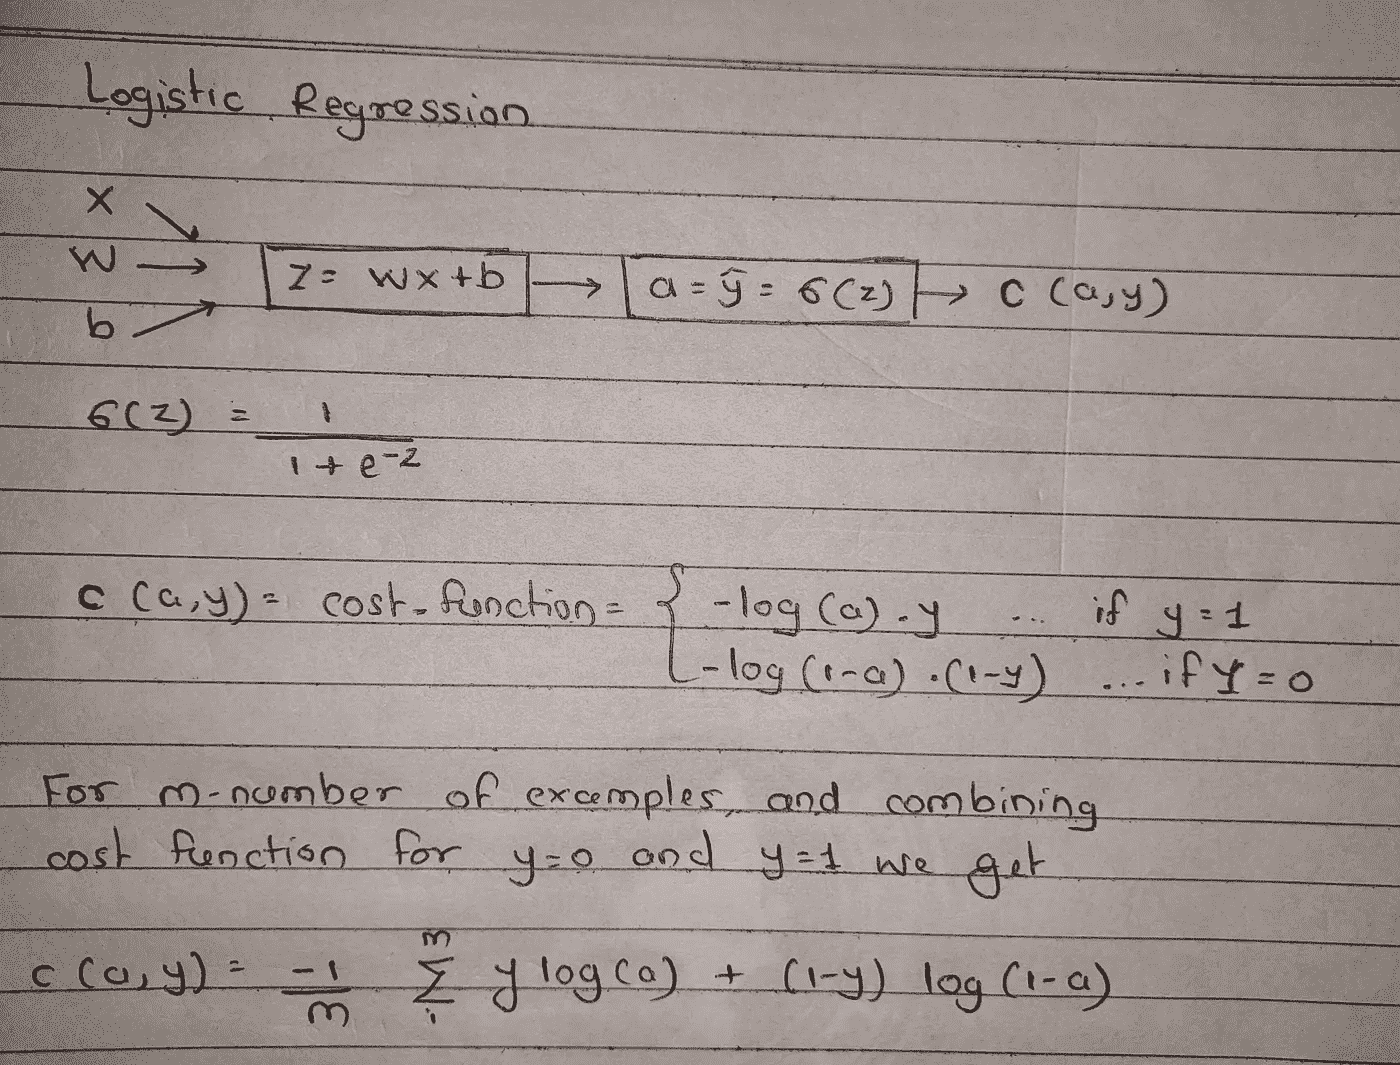 Logistic Regression
x
w → z = wx + b → a = ŷ = σ(z) → c (a,y)
b
σ(z) = 1
1 + e^-z
c (a,y) = cost-function = { -log (a) . y ... if y = 1
-log (1-a) . (1-y) ... if y = 0
For m-number of examples, and combining
cost function for y=0 and y=1 we get
m
c (a,y) = -1 Σ y log (a) + (1-y) log (1-a)
m i